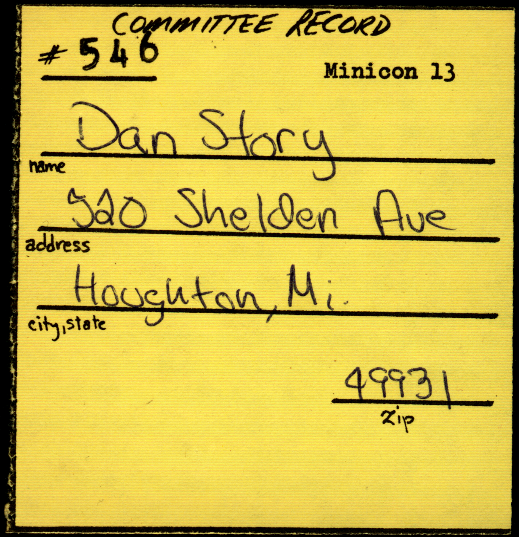 COMMITTEE RECORD
# 546
Minicon 13
Dan Story
name
520 Shelden Ave
address
Houghton, Mi.
city, state
49931
zip